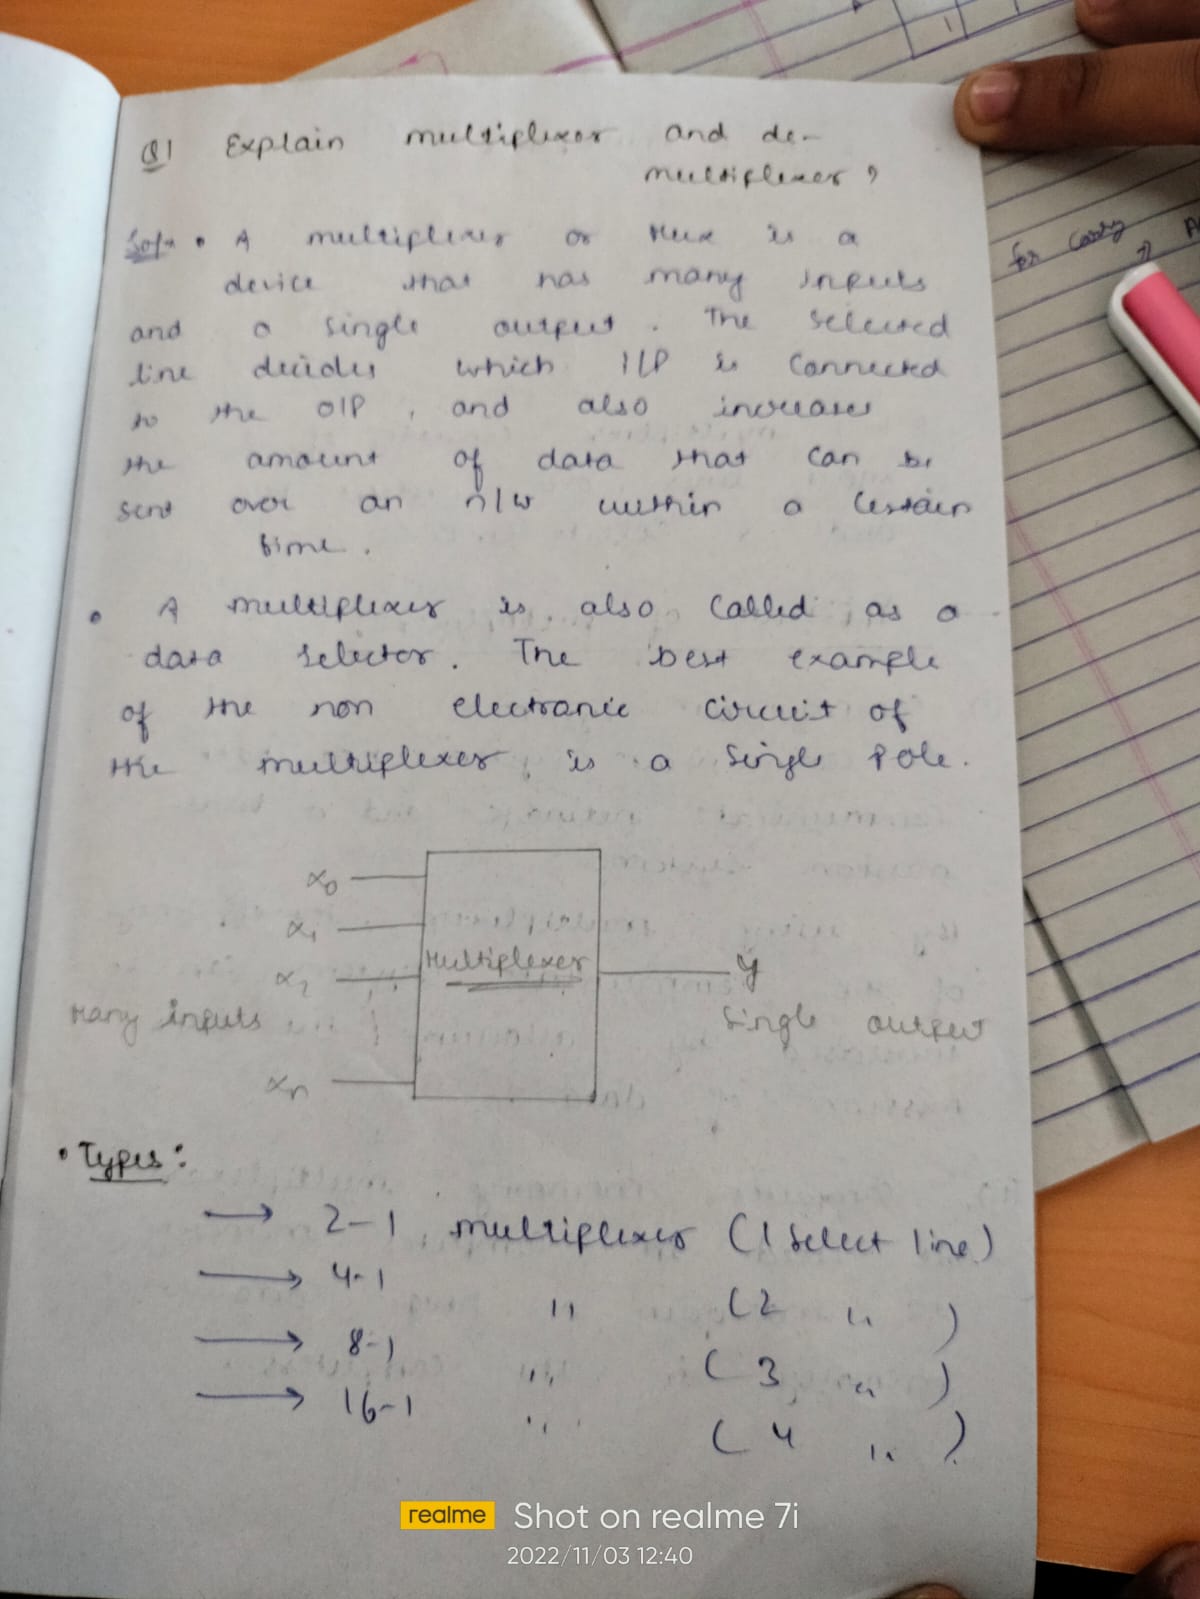 Q1 Explain multiplexer and de-
multiplexer ?
Soln • A multiplexer or Mux is a
device that has many inputs
and a single output . The selected
line decides which I/P is connected
to the O/P , and also increases
the amount of data that can be
sent over an n/w within a certain
time .
• A multiplexer is also called as a
data selector . The best example
of the non electronic circuit of
the multiplexer is a single pole .
x0
x1
Multiplexer
y
x2
many inputs
single output
xn
• Types :
→ 2-1 multiplexer (1 select line)
→ 4-1 " (2 " )
→ 8-1 " (3 " )
→ 16-1 " (4 " )
for carry
realme Shot on realme 7i
2022/11/03 12:40